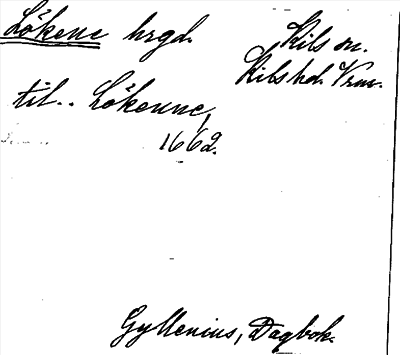 Lökene hrgd. Kils sn.
Kils hd. Vrm.
til.. Lökenne,
1662.
Gyllenius, Dagbok.